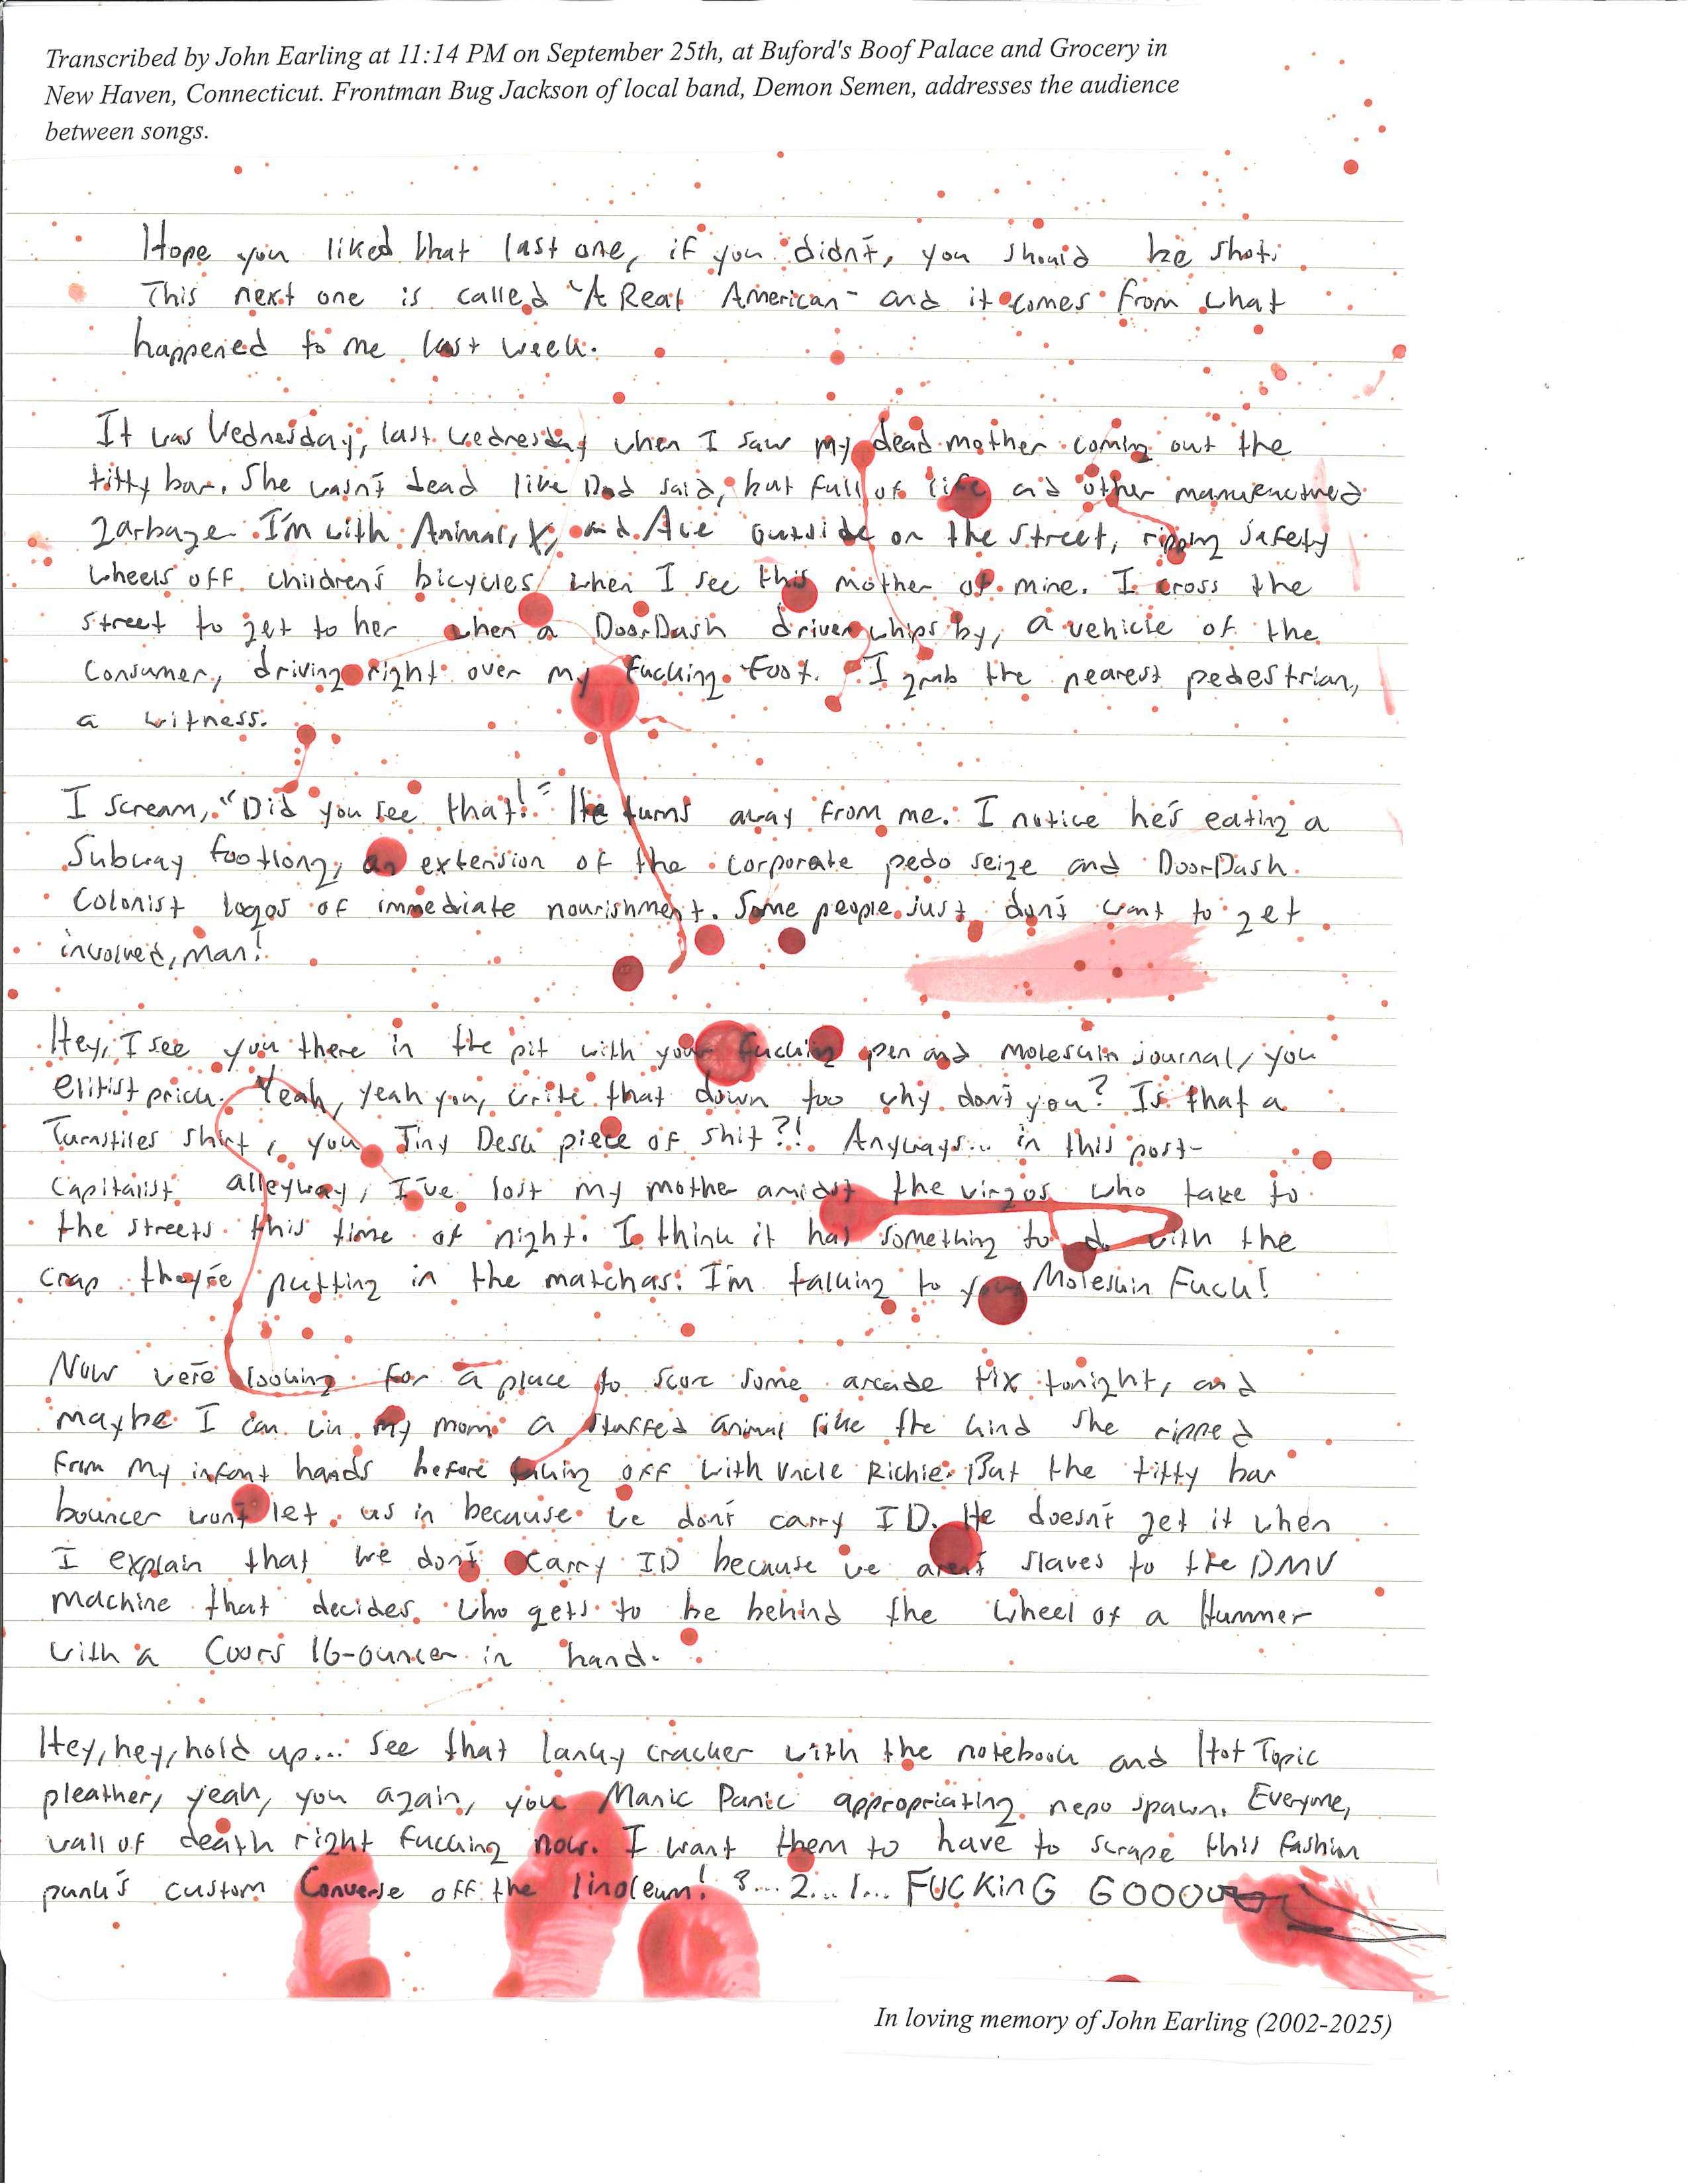 Transcribed by John Earling at 11:14 PM on September 25th, at Buford's Boof Palace and Grocery in
New Haven, Connecticut. Frontman Bug Jackson of local band, Demon Semen, addresses the audience
between songs.
Hope you liked that last one, if you didn't, you should be shot.
This next one is called "A Real American" and it comes from what
happened to me last week.
It was Wednesday, last Wednesday when I saw my dead mother coming out the
titty bar. She wasn't dead like Dad said, but full of life and other manufactured
garbage. I'm with Animal, X, and Ace outside on the street, ripping safety
wheels off children's bicycles when I see this mother of mine. I cross the
street to get to her when a DoorDash driver whips by, a vehicle of the
consumer, driving right over my fucking foot. I grab the nearest pedestrian,
a witness.
I scream, "Did you see that!" He turns away from me. I notice he's eating a
Subway footlong, an extension of the corporate pedo seize and DoorDash
Colonist logos of immediate nourishment. Some people just don't want to get
involved, man!
Hey, I see you there in the pit with your fucking pen and moleskin journal, you
elitist prick. Yeah, yeah you, write that down too why don't you? Is that a
Turnstiles shirt, you Tiny Desk piece of shit?! Anyways... in this post-
capitalist alleyway, I've lost my mother amidst the virgos who take to
the streets this time of night. I think it has something to do with the
crap they're putting in the matchas. I'm talking to you Moleskin Fuck!
Now we're looking for a place to score some arcade tix tonight, and
maybe I can win my mom a stuffed animal like the kind she ripped
from my infant hands before taking off with Uncle Richie. But the titty bar
bouncer won't let us in because we don't carry ID. He doesn't get it when
I explain that we don't carry ID because we aren't slaves to the DMV
machine that decides who gets to be behind the wheel of a Hummer
with a Coors 16-ouncer in hand.
Hey, hey, hold up... see that lanky cracker with the notebook and Hot Topic
pleather, yeah, you again, you Manic Panic appropriating nepo spawn. Everyone,
wall of death right fucking now. I want them to have to scrape this fashion
punk's custom Converse off the linoleum! 3... 2... 1... FUCKING GOOOO
In loving memory of John Earling (2002-2025)